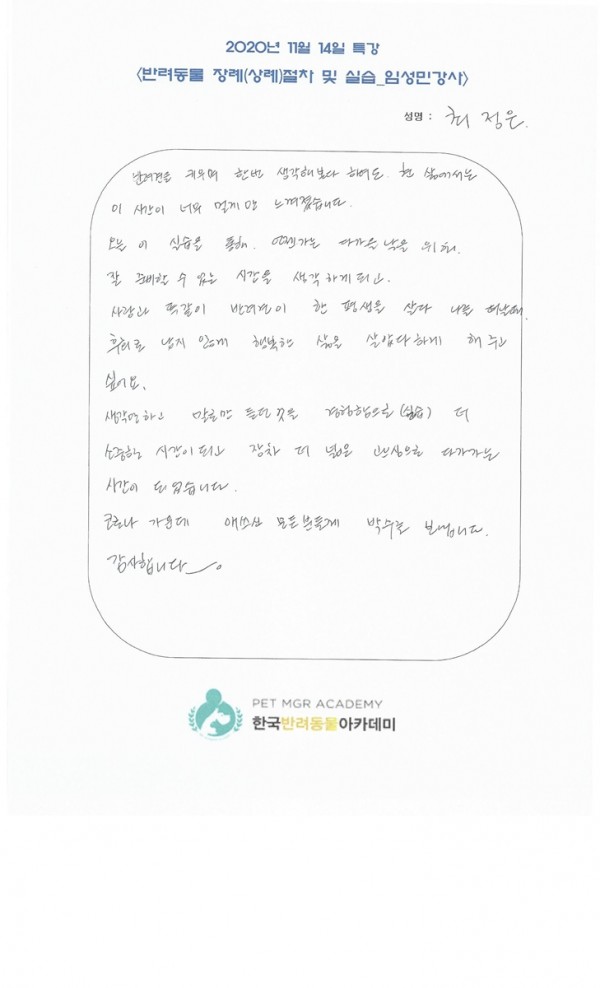 2020년 11월 14일 특강
<반려동물 장례(상례)절차 및 실습_임성민강사>
성명 : 최 정은
반려견을 키우며 한번 생각해보다 하여도 현 삶에서는
이 시간이 너무 멀게만 느껴졌습니다.
오늘 이 실습을 통해. 언젠가는 다가올 날을 위해.
잘 준비할 수 있는 시간을 생각하게되고.
사람과 똑같이 반려견이 한 평생을 살다 나를 떠날때.
후회로 남지 않게 행복한 삶을 살았다하게 해 주고
싶어요.
생각만하고 말로만 듣던것을 경험함으로(실습) 더
소중한 시간이되고 장차 더 넓은 관심으로 다가가는
시간이 되었습니다.
코로나 가운데 애쓰신 모든분들께 박수를 보냅니다.
감사합니다.
PET MGR ACADEMY
한국반려동물아카데미